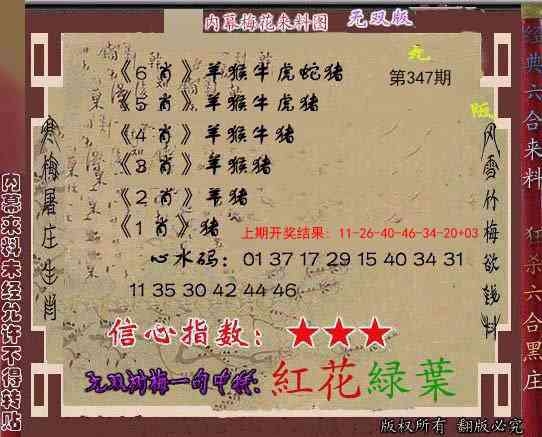 内幕梅花来料图 无双版
无
版
第347期
《6 肖》羊猴牛虎蛇猪
《5 肖》羊猴牛虎猪
《4 肖》羊猴牛猪
《3 肖》羊猴猪
《2 肖》羊猪
《1 肖》猪
上期开奖结果：11-26-40-46-34-20+03
心水码：01 37 17 29 15 40 34 31
11 35 30 42 44 46
信心指数：★★★
无双 梅一句中 ：紅花緑葉
寒梅屠庄生肖
风雪竹梅欲钱料
内幕来料未经允许不得转贴
经典六合来料 狂杀六合黑庄
版权所有 翻版必究